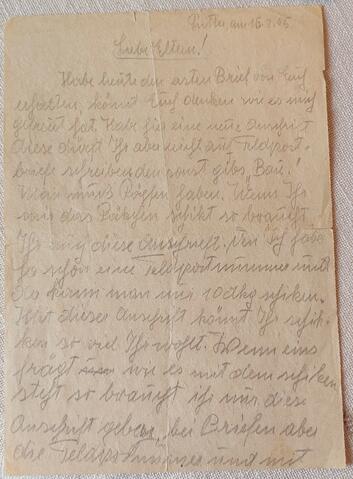 am 16.2.45
Liebe Eltern!
Habe heute den ersten Brief von Euch
erhalten, könnt Euch denken wie es mich
gefreut hat. Habe hier eine neue Anschrift
diese dürft Ihr aber nicht auf Feldpost-
briefe schreiben den sonst gibts „Bau.“!
Man muß haben. Wenn Ihr
mir das Päckchen schikt so braucht
Ihr nur diese Anschrift. Den ich habe
ja schon eine Feldpostnummer und
da kann man nur 10 dkg schiken.
Mit dieser Anschrift könnt Ihr schik-
ken so viel Ihr wohlt. Wenn eins
frägt wie es mit dem schiken
steht so braucht ihr nur diese
Anschrift geben, bei Briefen aber
die Feldpostnummer und mit